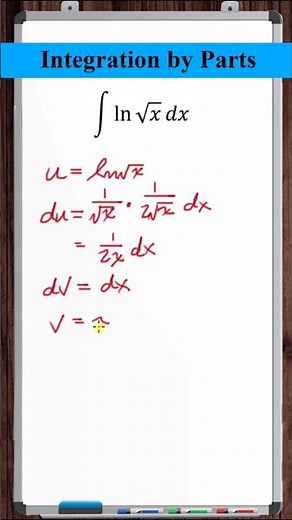 Integration by Parts
∫ ln √x dx
u = ln√x
du = 1/√x · 1/2√x dx
= 1/2x dx
dv = dx
v = x